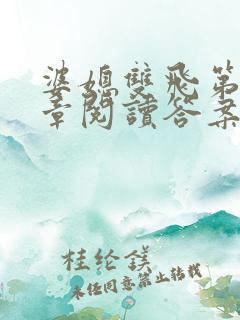 婆媳雙飛第
章閱讀答案
桂纶鎂
未经同意禁止转载